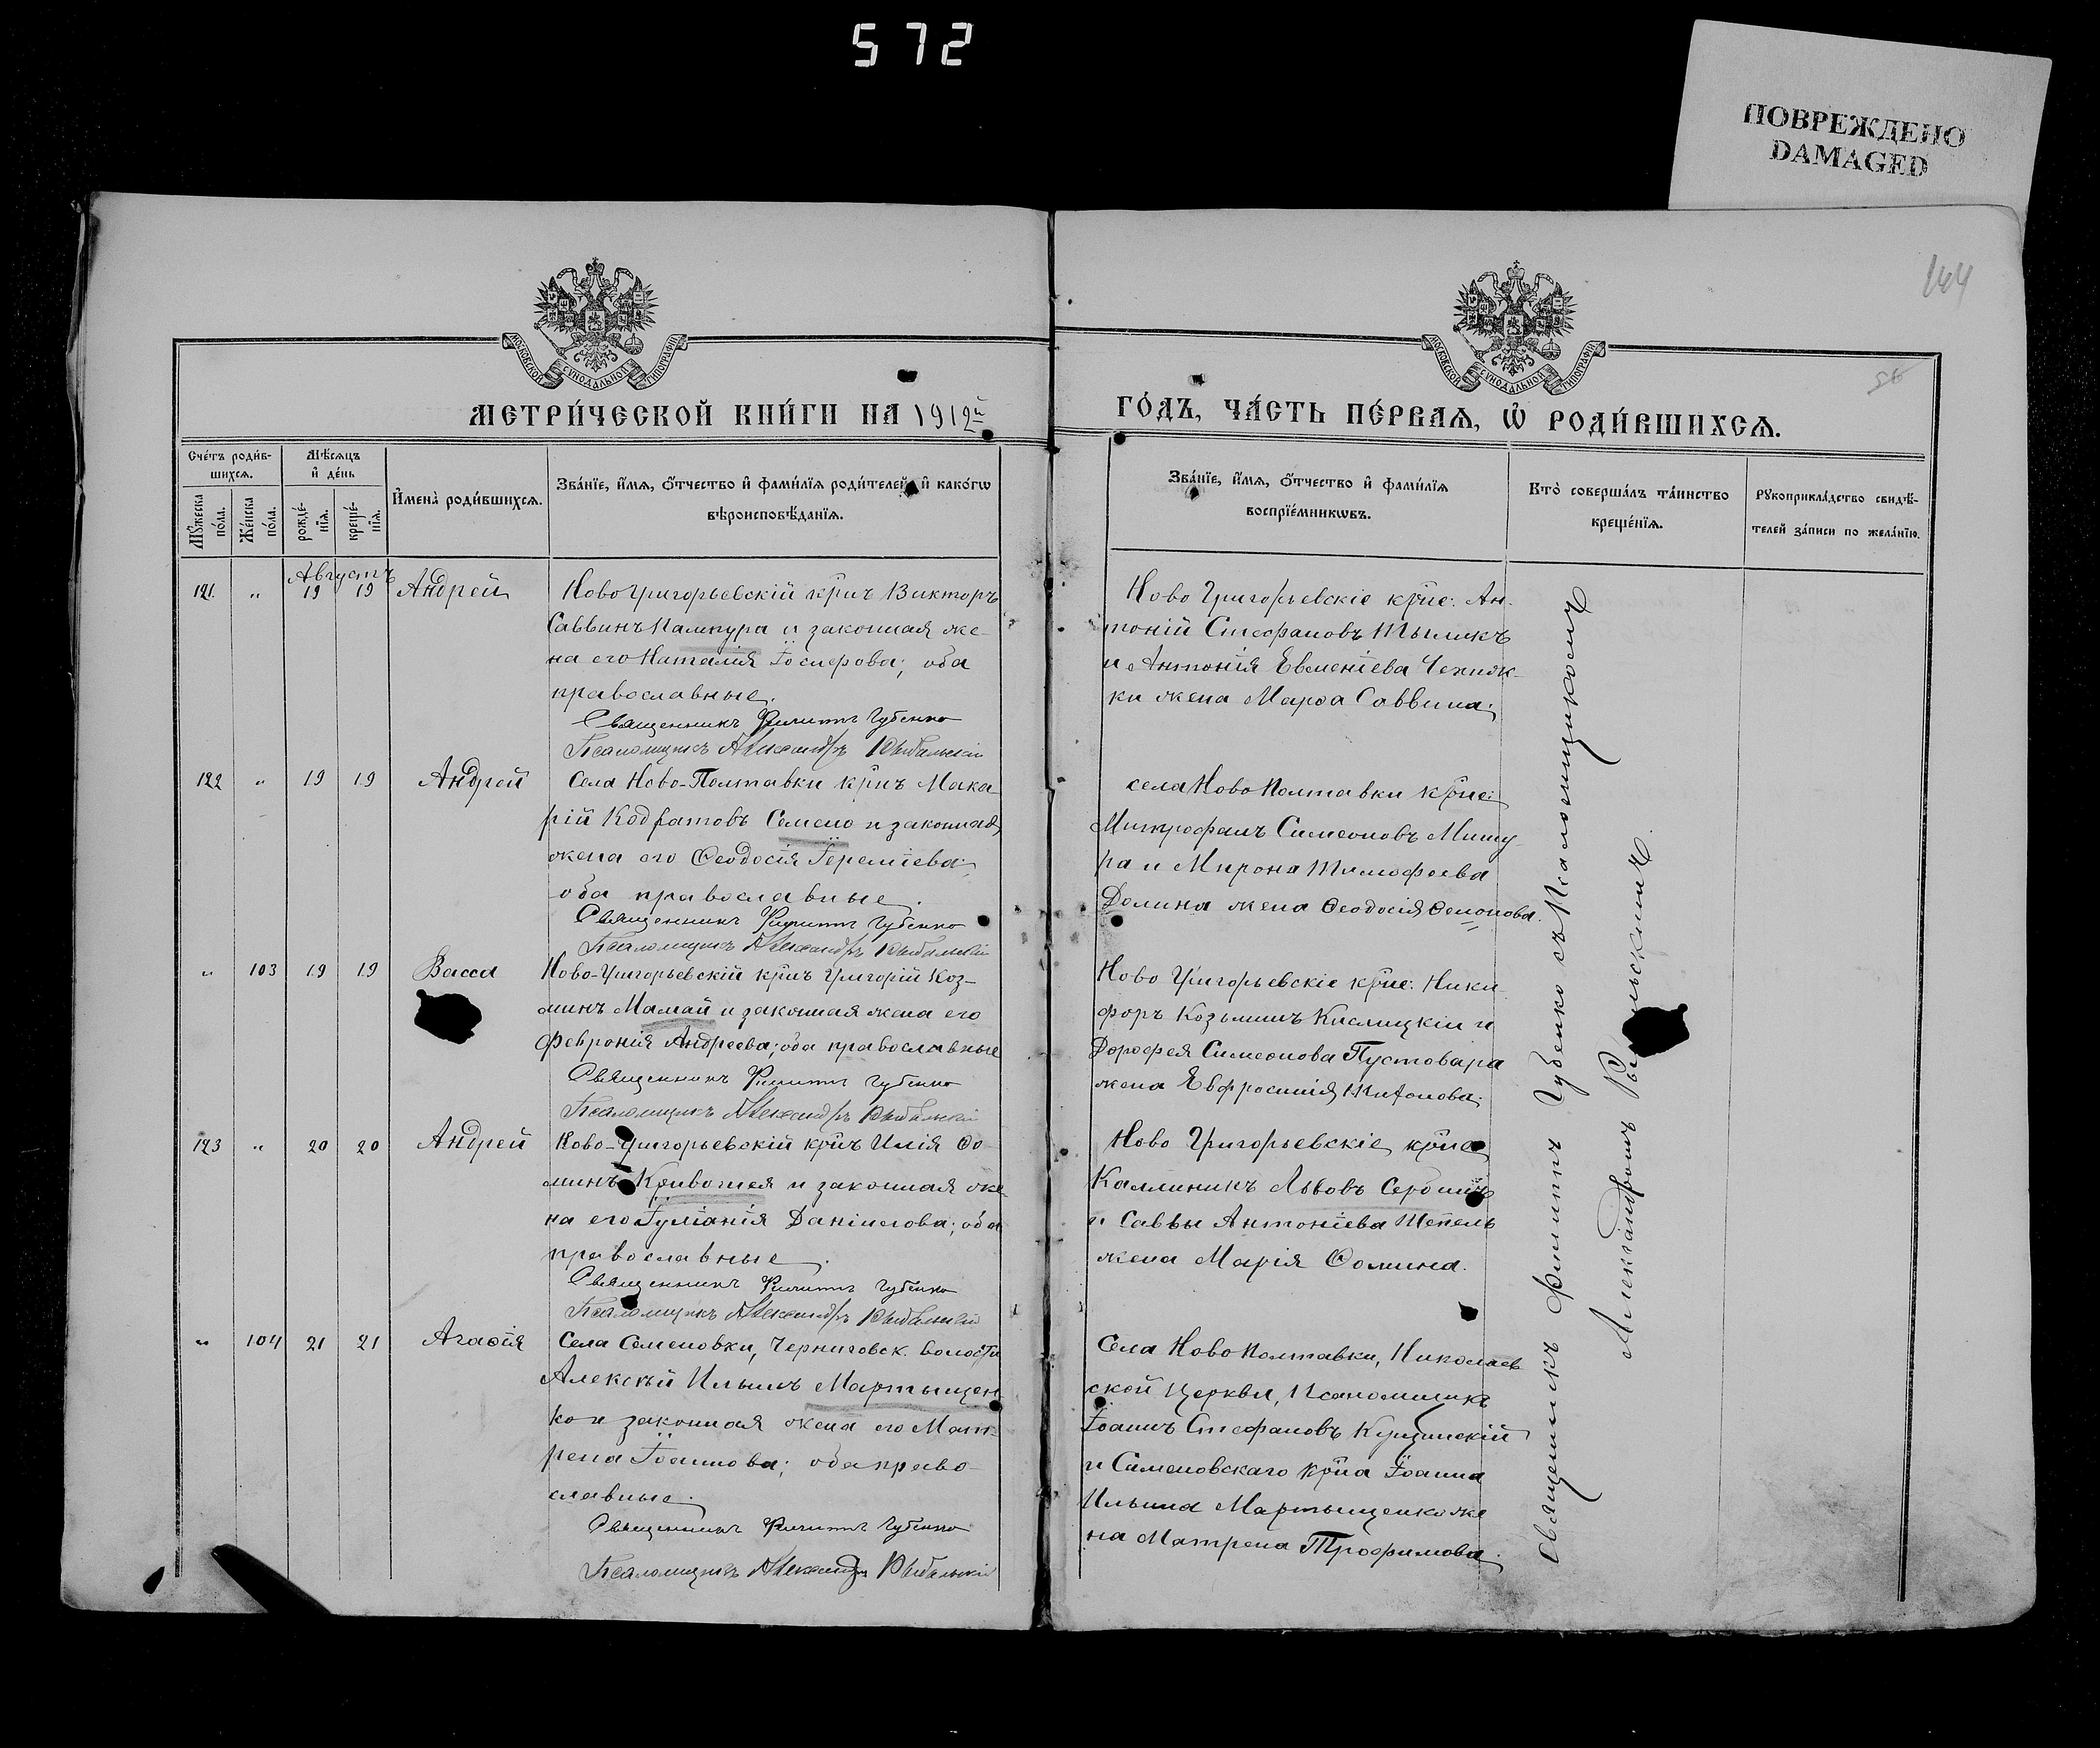 572
ПОВРЕЖДЕНО
DAMAGED
144
56
МОСКОВСКОЙ СУНОДАЛЬНОЙ ТИПОГРАФІИ
МОСКОВСКОЙ СУНОДАЛЬНОЙ ТИПОГРАФІИ
МЕТРИ́ЧЕСКОЙ КНИ́ГИ НА 1912й
ГО́ДЪ, ЧА́СТЬ ПЕ́РВАѦ, Ѡ РОДИ́ВШИХСѦ.
Сче́тъ роди́в-
шихсѧ.
Мѣ́сяцъ
и де́нь
Мꙋжеска
по́ла.
Же́нска
по́ла.
рожде́-
нїѧ.
креще́-
нїѧ.
Имена̀ роди́вшихсѧ.
Зва́нїе, и́мѧ, о́тчество и фами́лїѧ роди́телей, и како́гѡ
вѣроисповѣ́данїѧ.
Зва́нїе, и́мѧ, о́тчество и фами́лїѧ
воспрїе́мникѡвъ.
Кто̀ соверша́лъ та́инство
креще́нїѧ.
Рꙋкоприкла́дство свидѣ́-
телей за́писи по жела́нїю.
Августъ
121. " 19 19 Андрей
Ново Григорьевскій кр͠нъ Викторъ
Саввинъ и законная же-
на его Наталія Іосифова; оба
православные.
Священникъ Филиппъ Губенко
Псаломщикъ Александръ Рыбальскій
Ново Григорьевскіе кр͠не: Ан-
тоній Стефановъ
и Антонія Евменіева
ки жена Марѳа Саввина.
122 " 19 19 Андрей
Села Ново-Полтавки кр͠нъ Мака
рій Кодратовъ Семено и законная
жена его Ѳеодосія Іереміева;
оба православные.
Священникъ Филиппъ Губенко
Псаломщикъ Александръ Рыбальскій
села Ново Полтавки кр͠не:
Митрофанъ Симеоновъ Мишу
ра и Мирона Тимофеева
Долина жена Ѳеодосія
" 103 19 19 Васса
Ново-Григорьевскій кр͠нъ Григорій Коз-
минъ Мамай и законная жена его
Феѵронія Андреева; оба православные
Священникъ Филиппъ Губенко
Псаломщикъ Александръ Рыбальскій
Ново Григорьевскіе кр͠не: Ники
форъ Козьминъ Кислицкій и
Дорофея Симеонова Пустовара
жена Евфросинія
123 " 20 20 Андрей
Ново-Григорьевскій кр͠нъ Илія Ѳо
минъ Кривошея и законная же-
на его Іуліанія Даніилова; оба
православные.
Священникъ Филиппъ Губенко
Псаломщикъ Александръ Рыбальскій
Ново Григорьевскіе кр͠не
Каллиникъ Львовъ
и Саввы Антоніева Шепель
жена Марія Ѳомина.
" 104 21 21 Агаѳія
Села Семеновки, Черниговск. волости
Алексѣй Ильинъ Мартыщен-
ко и законная жена его Мат-
рена Іоаннова; оба право-
славные.
Священникъ Филиппъ Губенко
Псаломщикъ Александръ Рыбальскій
Села Ново Полтавки, Николаев
ской Церкви, Псаломщикъ
Іоаннъ Стефановъ
и Семеновскаго кр͠на Іоанна
Ильина Мартыщенко же
на Матрена Трофимова.
Священникъ Филиппъ Губенко съ Псаломщикомъ
Александромъ Рыбальскимъ.